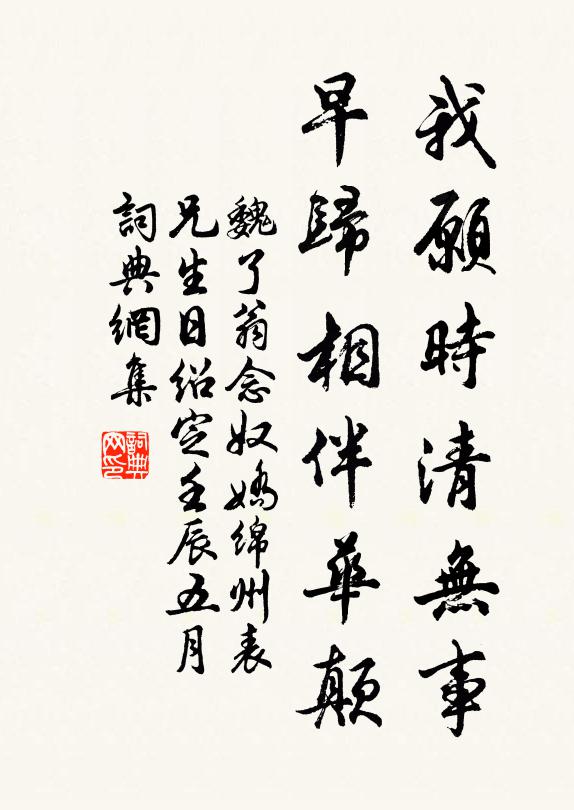 我願時清無事
早歸相伴華顛
魏了翁念奴嬌綿州表
兄生日紹定壬辰五月
詞典網集
詞典网印